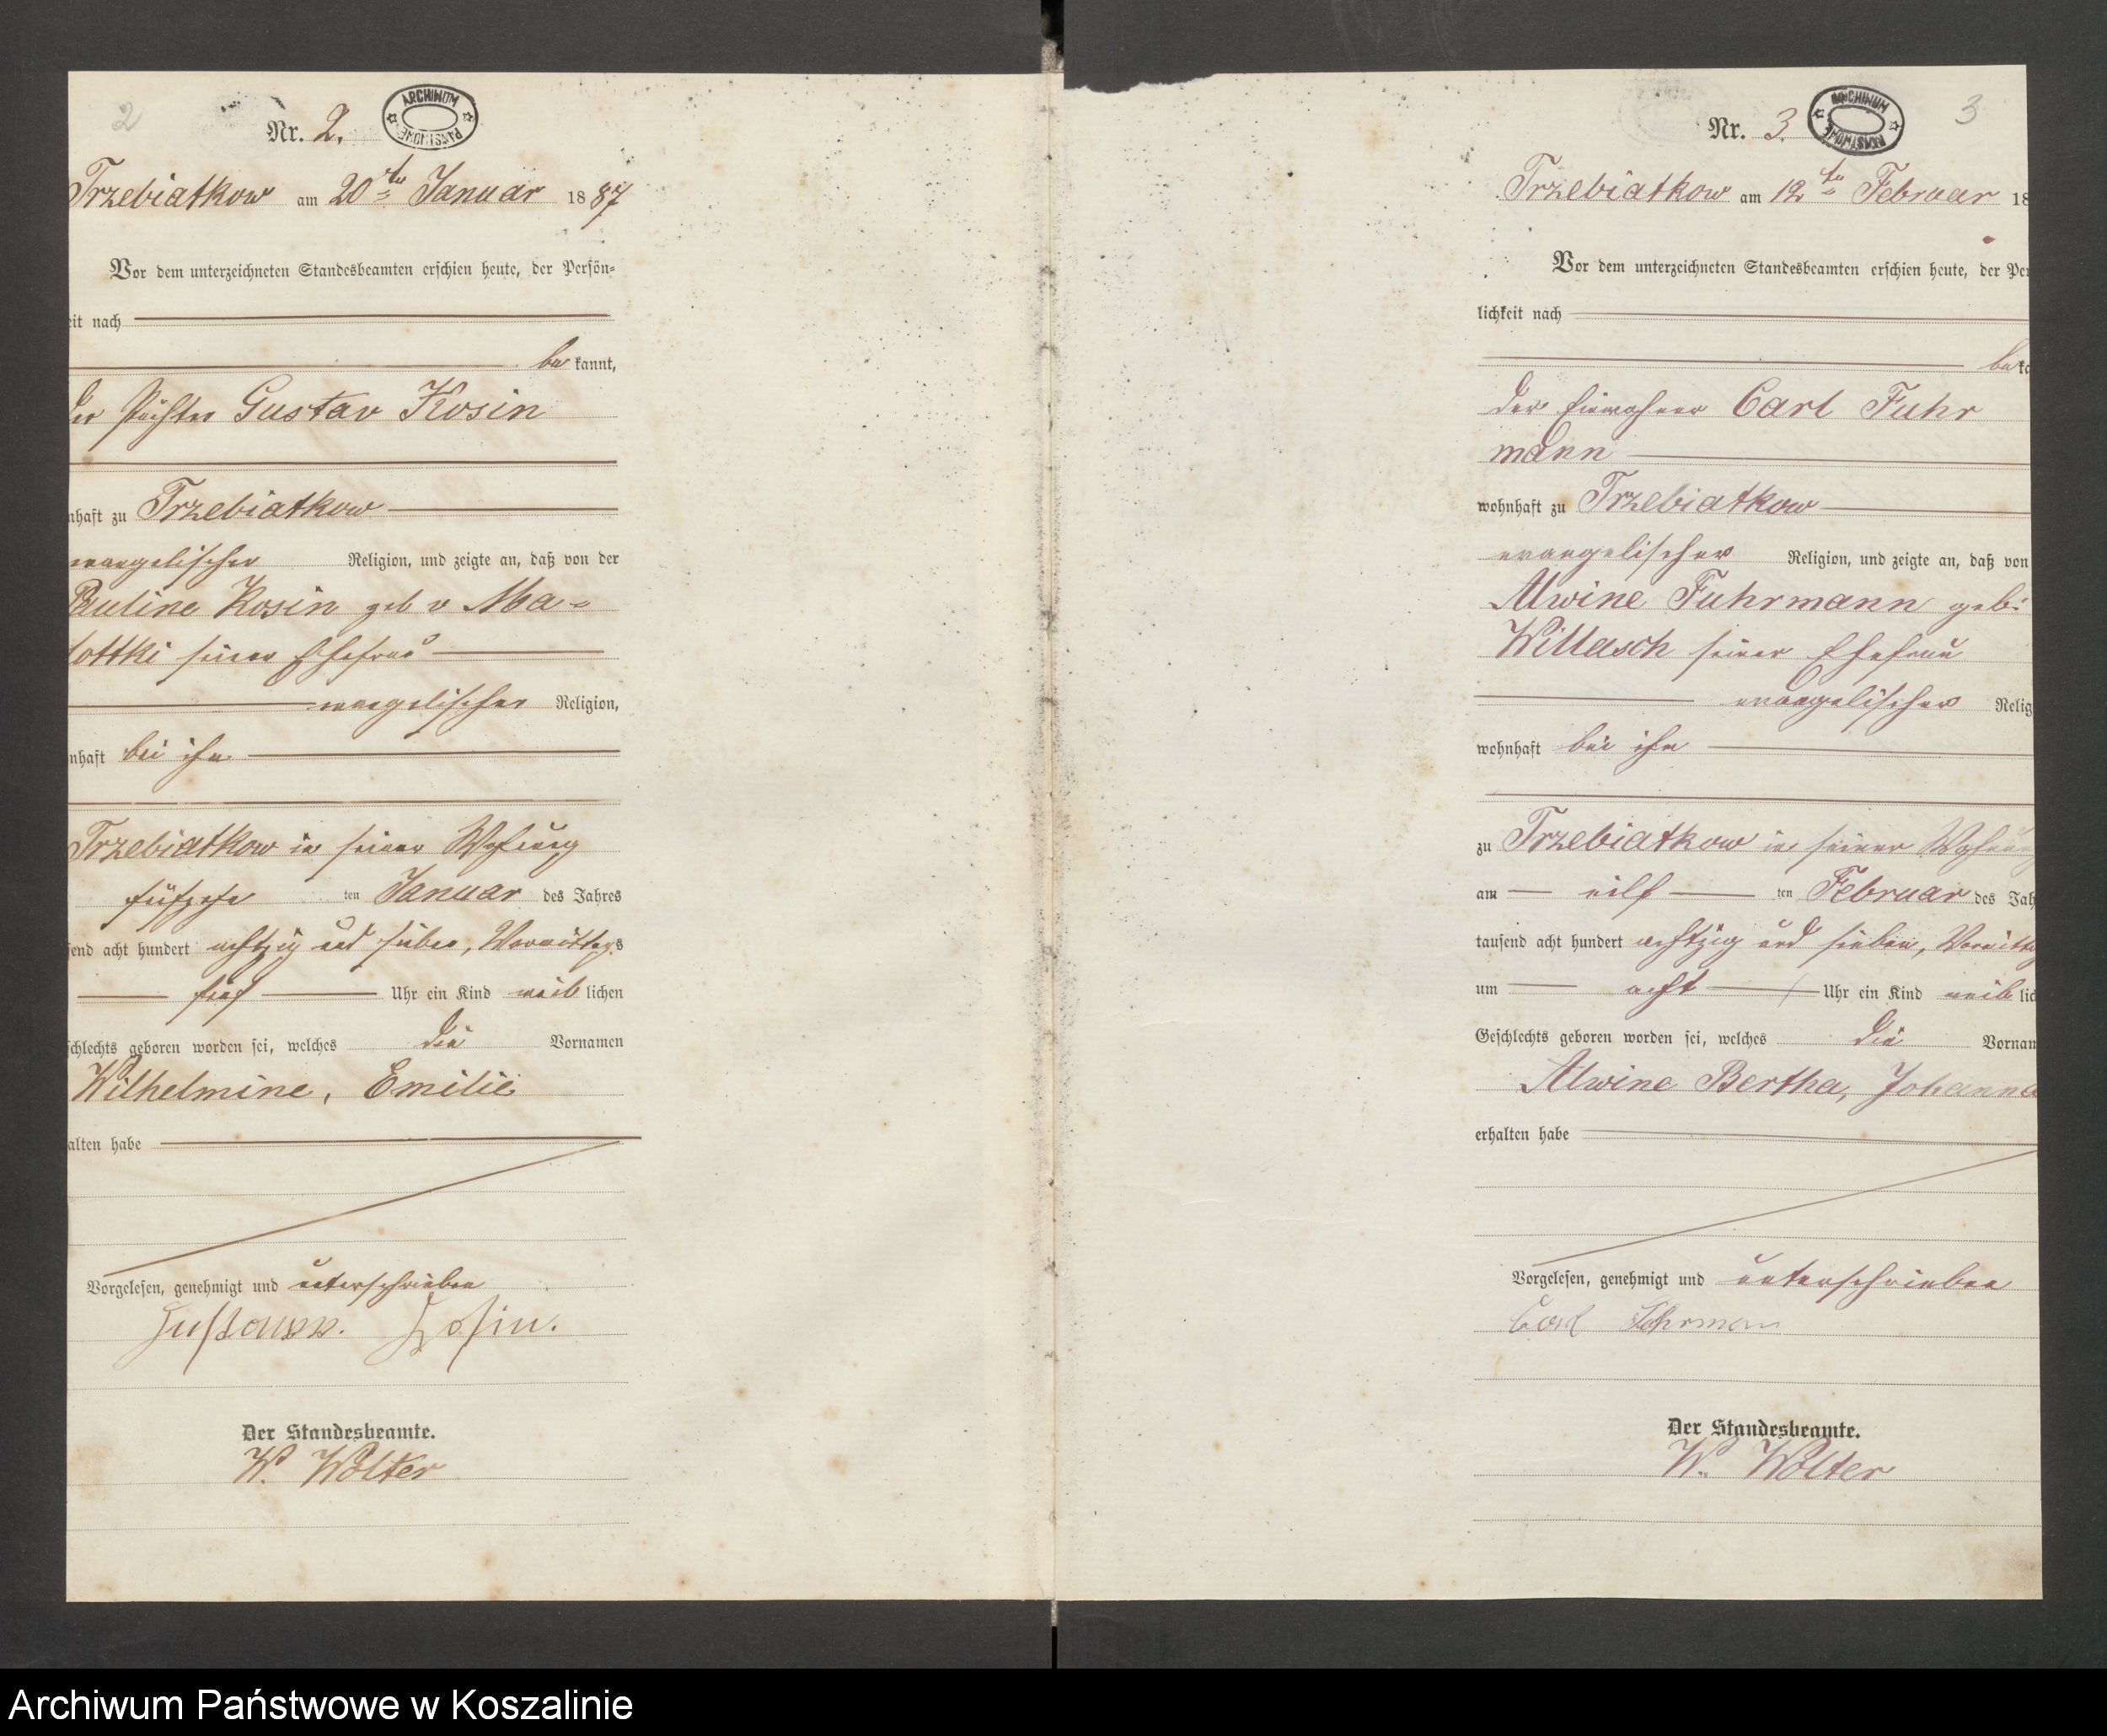 2
Nr. 2.
ARCHIWUM PAŃSTWOWE
Trzebiatkow am 20ten Januar 1887
Vor dem unterzeichneten Standesbeamten erschien heute, der Persön=
eit nach
be kannt,
der Pächter Gustav Kosin
nhaft zu Trzebiatkow
evangelischer Religion, und zeigte an, daß von der
Pauline Kosin geb v Ma=
lottki seiner Ehefrau
evangelischer Religion,
nhaft bei ihm
Trzebiatkow in seiner Wohnung
fünfzehn ten Januar des Jahres
send acht hundert achtzig und sieben, Vormittags
fünf Uhr ein Kind weib lichen
schlechts geboren worden sei, welches die Vornamen
Wilhelmine, Emilie
alten habe
Vorgelesen, genehmigt und unterschrieben
Kosin.
Der Standesbeamte.
W. Wolter
3
Nr. 3.
ARCHIWUM PAŃSTWOWE
Trzebiatkow am 12ten Februar 18
Vor dem unterzeichneten Standesbeamten erschien heute, der Per
lichkeit nach
be ka
der Einwohner Carl Fuhr
mann
wohnhaft zu Trzebiatkow
evangelischer Religion, und zeigte an, daß von
Alwine Fuhrmann geb:
Willasch seiner Ehefrau
evangelischer Relig
wohnhaft bei ihm
zu Trzebiatkow in seiner Wohnung
am eilf ten Februar des Jah
tausend acht hundert achtzig und sieben, Vormittag
um acht Uhr ein Kind weib lic
Geschlechts geboren worden sei, welches die Vornam
Alwine Bertha, Johanna
erhalten habe
Vorgelesen, genehmigt und unterschrieben
Carl
Der Standesbeamte.
W. Wolter
Archiwum Państwowe w Koszalinie